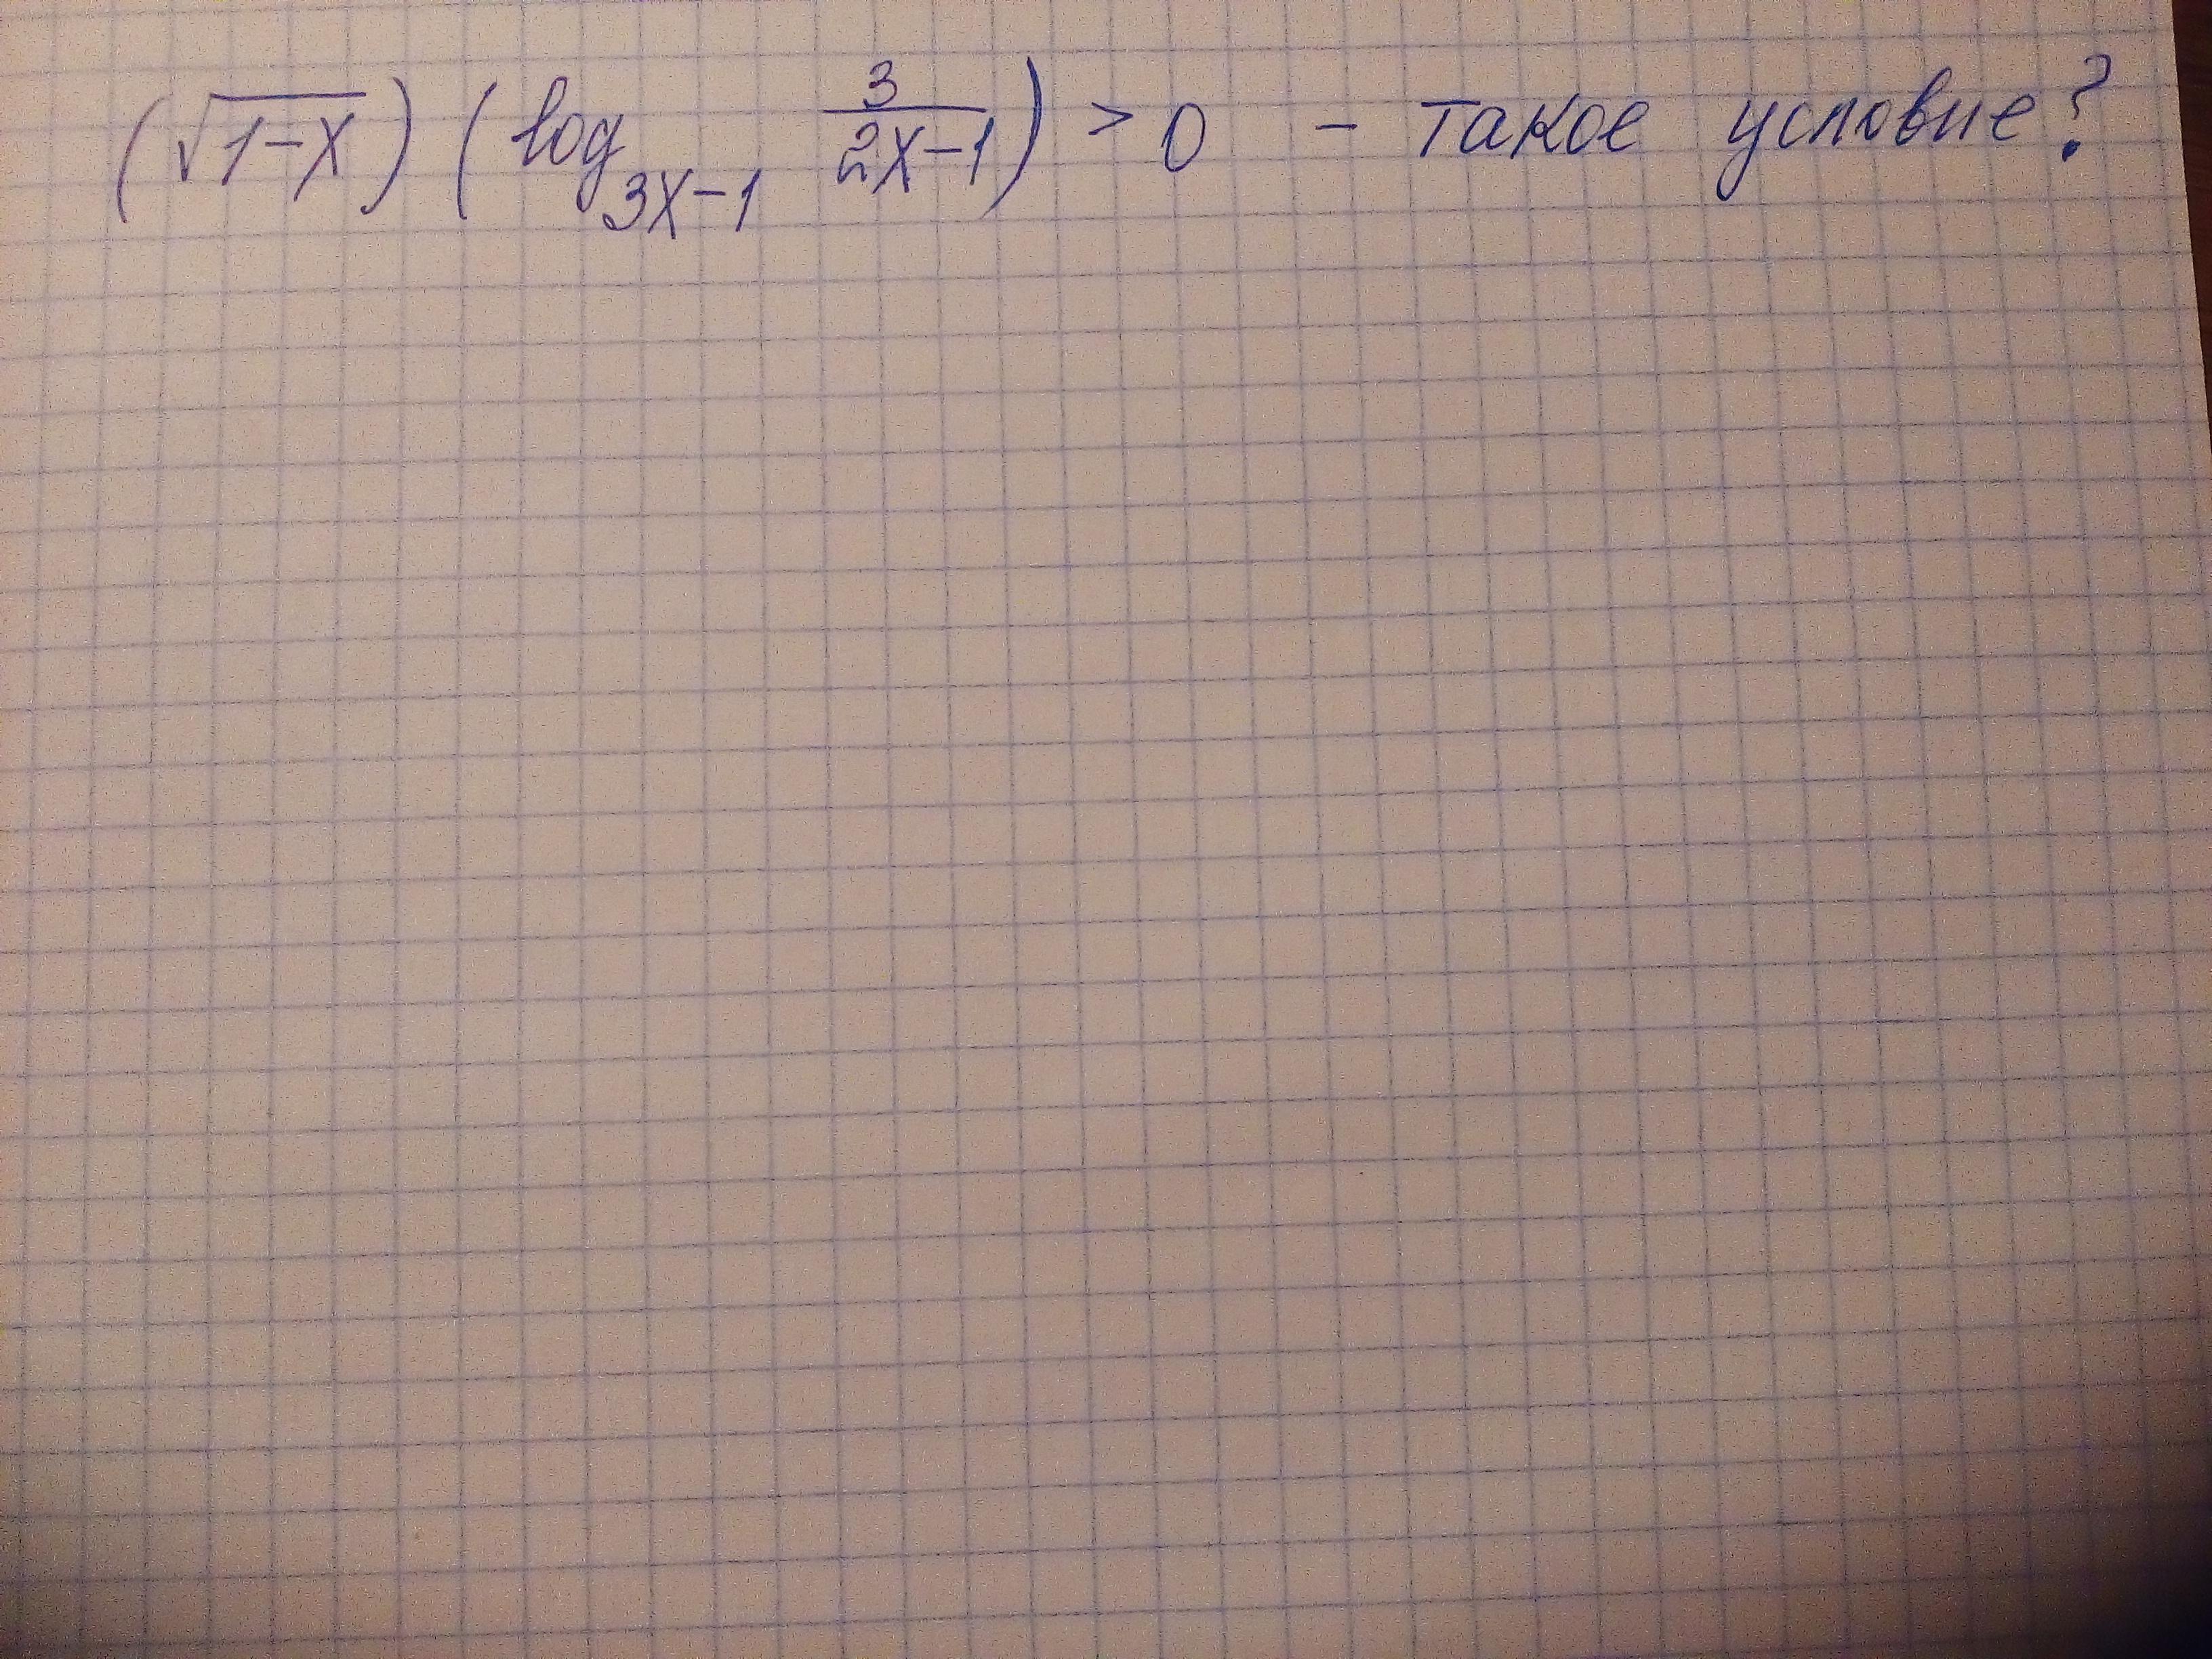 (√1-x) (log_{3x-1} 3/(2x-1)) > 0 - такое условие?